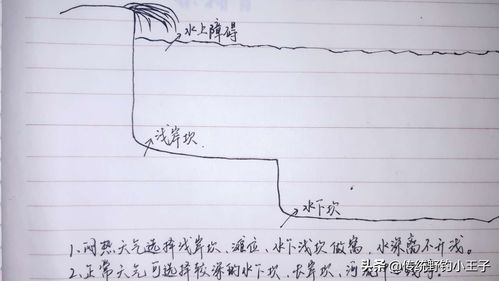 水上障碍
浅岸坎
水下坎
1.闷热天气选择浅岸坎、滩位、水下浅坎做窝,水深离不开浅。
2.正常天气可选择较深的水下坎、长岸坎、河
头条@传统野钓小王子